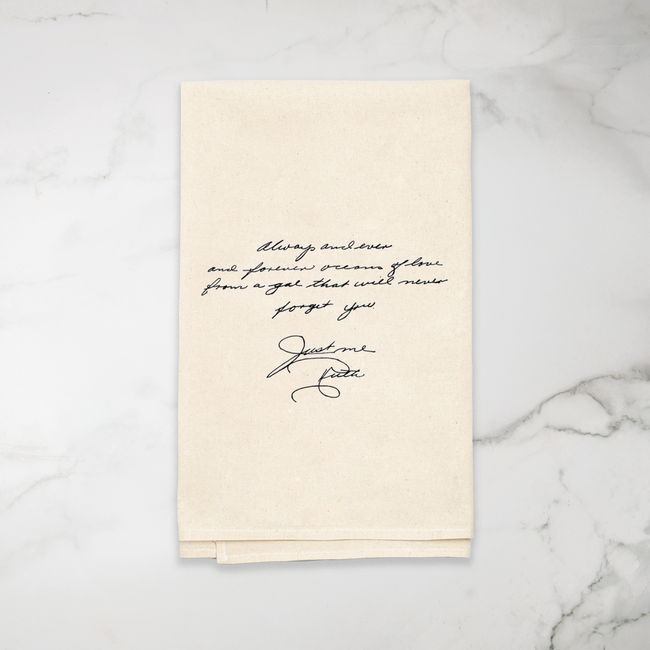 Always and ever
and forever oceans of love
from a gal that will never
forget you
Just me
Ruth